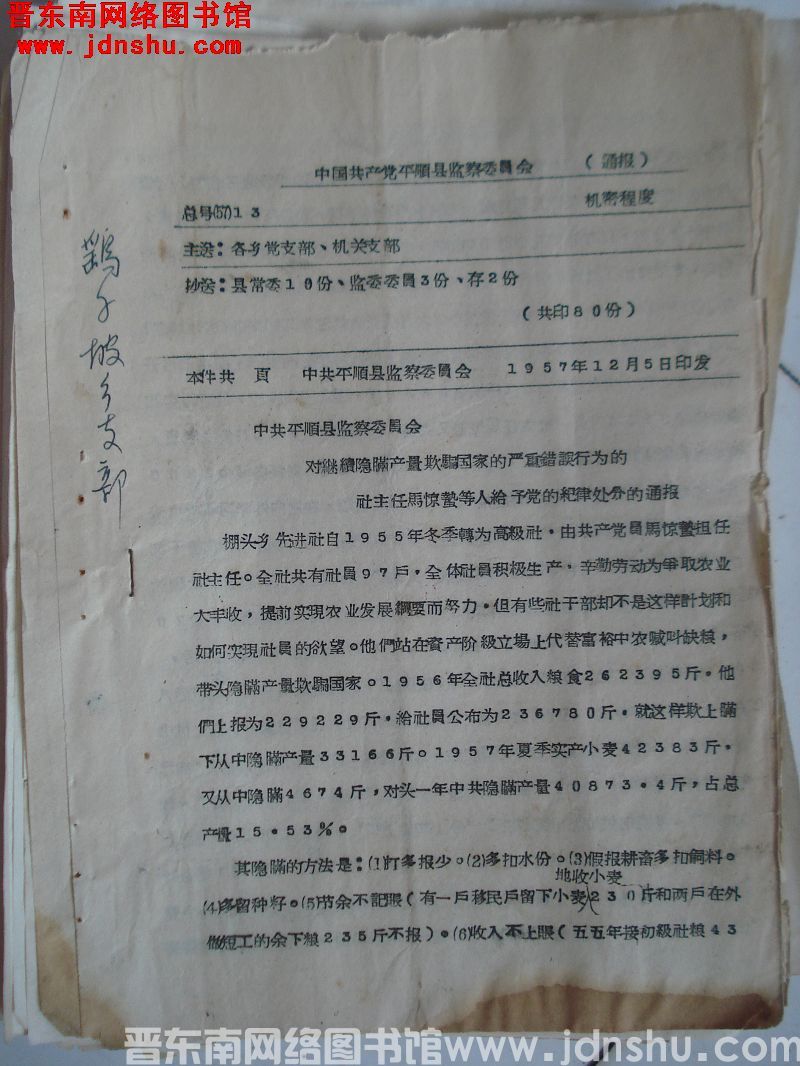 晋东南网络图书馆
www.jdnshu.com
中国共产党平順县监察委員会 (通报)
总号(57)13 机密程度
主送：各乡党支部、机关支部
抄送：县常委10份、监委委員3份、存2份
(共印80份)
本件共 頁 中共平順县监察委員会 1957年12月5日印发
坡乡支部
中共平順县监察委員会
对継續隐瞞产量欺騙国家的严重錯誤行为的
社主任馬惊蟄等人給予党的紀律处分的通报
棚头乡先进社自1955年冬季轉为高級社．由共产党員馬惊蟄担任
社主任。全社共有社員97戶．全体社員积极生产．辛勤劳动为爭取农业
大丰收，提前实現农业发展綱要而努力．但有些社干部却不是这样計划和
如何实現社員的欲望。他們站在資产阶級立場上代替富裕中农喊叫缺粮，
带头隐瞞产量欺騙国家。1956年全社总收入粮食262395斤．他
們上报为229229斤．給社員公布为236780斤．就这样欺上瞞
下从中隐瞞产量33166斤。1957年夏季实产小麦42383斤．
又从中隐瞞4674斤，对头一年中共隐瞞产量40873.4斤，占总
产量15.53%。
其隐瞞的方法是：(1)打多报少。(2)多扣水份。(3)假报耕畜多扣飼料。
地收小麦
(4)多留种籽。(5)节余不記賬(有一戶移民戶留下小麦230斤和两戶在外
做短工的余下粮235斤不报)。(6)收入不上賬(五五年接初級社粮43
晋东南网络图书馆www.jdnshu.com